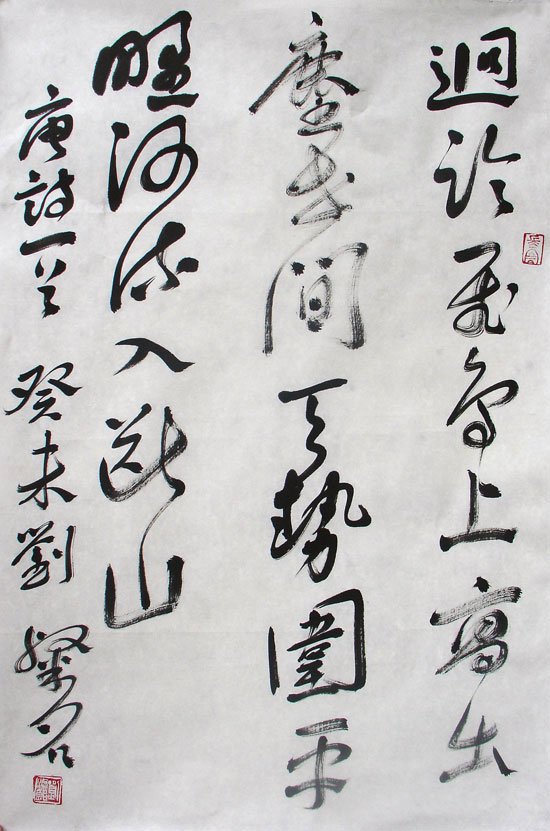 迥臨飛鳥上高出
塵世間天勢圍平
野河流入斷山
唐詩一首 癸未劉粲名